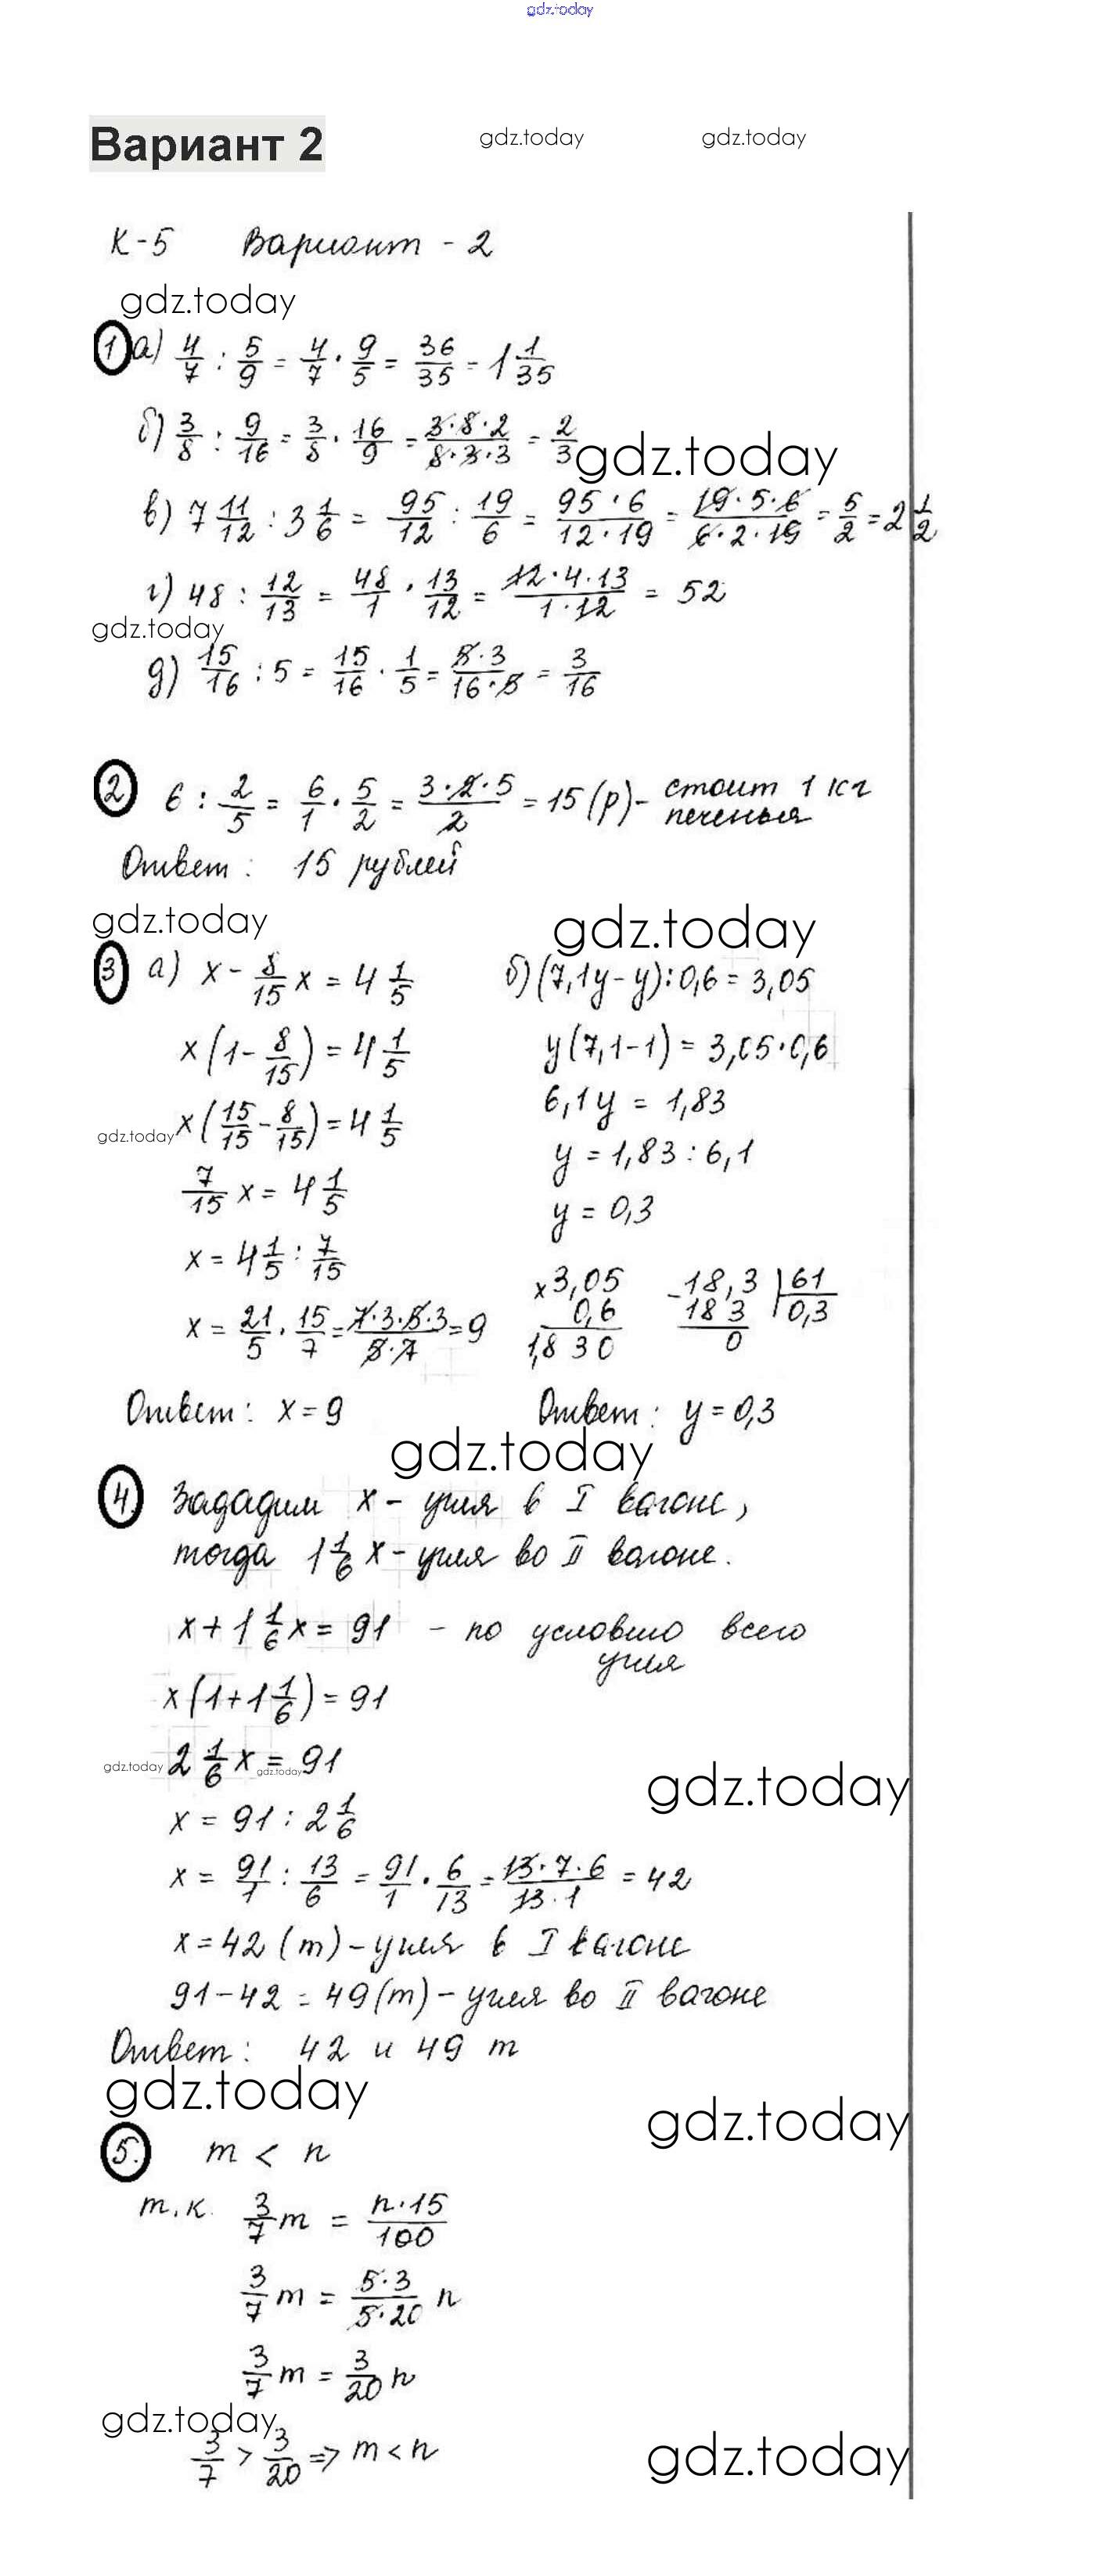 gdz.today
Вариант 2
gdz.today gdz.today
К-5 Вариант - 2
gdz.today
1 а) 4/7 : 5/9 = 4/7 · 9/5 = 36/35 = 1 1/35
б) 3/8 : 9/16 = 3/8 · 16/9 = 3·8·2/8·3·3 = 2/3
gdz.today
в) 7 11/12 : 3 1/6 = 95/12 : 19/6 = 95·6/12·19 = 19·5·6/6·2·19 = 5/2 = 2 1/2
г) 48 : 12/13 = 48/1 · 13/12 = 12·4·13/1·12 = 52
gdz.today
д) 15/16 : 5 = 15/16 · 1/5 = 5·3/16·5 = 3/16
2 6 : 2/5 = 6/1 · 5/2 = 3·2·5/2 = 15 (р) - стоит 1 кг
печенья
Ответ: 15 рублей
gdz.today gdz.today
3 а) x - 8/15 x = 4 1/5
x(1 - 8/15) = 4 1/5
x(15/15 - 8/15) = 4 1/5
gdz.today
7/15 x = 4 1/5
x = 4 1/5 : 7/15
x = 21/5 · 15/7 = 7·3·5·3/5·7 = 9
Ответ: x = 9
б) (7,1y - y) : 0,6 = 3,05
y(7,1 - 1) = 3,05 · 0,6
6,1y = 1,83
y = 1,83 : 6,1
y = 0,3
x 3,05
0,6
1,8 3 0
-18,3 | 61
18 3 0,3
0
Ответ: y = 0,3
gdz.today
4. Зададим x - угля в I вагоне,
тогда 1 1/6 x - угля во II вагоне.
x + 1 1/6 x = 91 - по условию всего
угля
x(1 + 1 1/6) = 91
2 1/6 x = 91
gdz.today gdz.today
gdz.today
x = 91 : 2 1/6
x = 91/1 : 13/6 = 91/1 · 6/13 = 13·7·6/13·1 = 42
x = 42 (т) - угля в I вагоне
91 - 42 = 49 (т) - угля во II вагоне
Ответ: 42 и 49 т
gdz.today
gdz.today
5. m < n
т.к. 3/7 m = n·15/100
3/7 m = 5·3/5·20 n
3/7 m = 3/20 n
gdz.today
3/7 > 3/20 => m < n
gdz.today